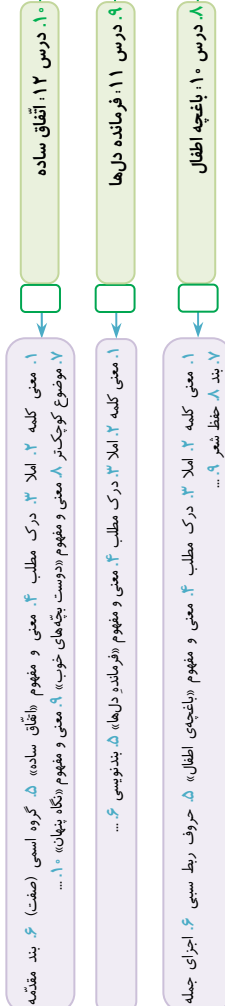 ۸. درس ۱۰: باغچه اطفال
۱. معنی کلمه ۲. املا ۳. درک مطلب ۴. معنی و مفهوم «باغچه‌ی اطفال» ۵. حروف ربط سببی ۶. اجزای جمله
۷. بند ۸. حفظ شعر ۹. ...
۹. درس ۱۱: فرمانده دل‌ها
۱. معنی کلمه ۲. املا ۳. درک مطلب ۴. معنی و مفهوم «فرمانده‌ِ دل‌ها» ۵. بندنویسی ۶. ...
۱۰. درس ۱۲: اتّفاق ساده
۱. معنی کلمه ۲. املا ۳. درک مطلب ۴. معنی و مفهوم «اتّفاق ساده» ۵. گروه اسمی (صفت) ۶. بند مقدّمه
۷. موضوع کوچک‌تر ۸. معنی و مفهوم «دوست بچّه‌های خوب» ۹. معنی و مفهوم «نگاه پنهان» ۱۰. ...